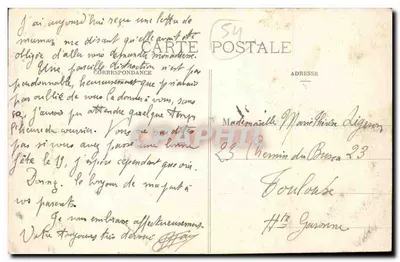 54
CARTE POSTALE
CORRESPONDANCE
ADRESSE
J'ai aujourd'hui reçu une lettre de
maman me disant qu'elle avait été
obligée d'aller vous demander mon adresse.
Une pareille distraction n'est pas
pardonnable, heureusement que je n'avais
pas oublié de vous la donner à vous, sans
ça, j'aurais pu attendre quelque temps
pas si vous avez passé une bonne
fête le 19, j'espère cependant que oui.
Doing. Le bonjour de ma part à
vos parents.
Je vous embrasse affectueusement.
Votre toujours très
Mademoiselle Marie Thérèse
23 Chemin du 23
Toulouse
Hte Garonne